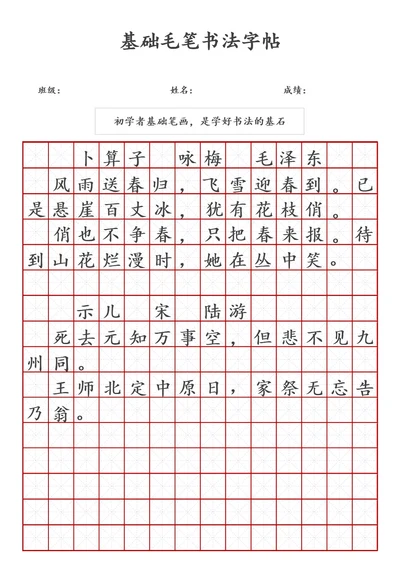 基础毛笔书法字帖
班级： 姓名： 成绩：
初学者基础笔画，是学好书法的基石
卜算子 咏梅 毛泽东
风雨送春归，飞雪迎春到。已
是悬崖百丈冰，犹有花枝俏。
俏也不争春，只把春来报。待
到山花烂漫时，她在丛中笑。
示儿 宋 陆游
死去元知万事空，但悲不见九
州同。
王师北定中原日，家祭无忘告
乃翁。